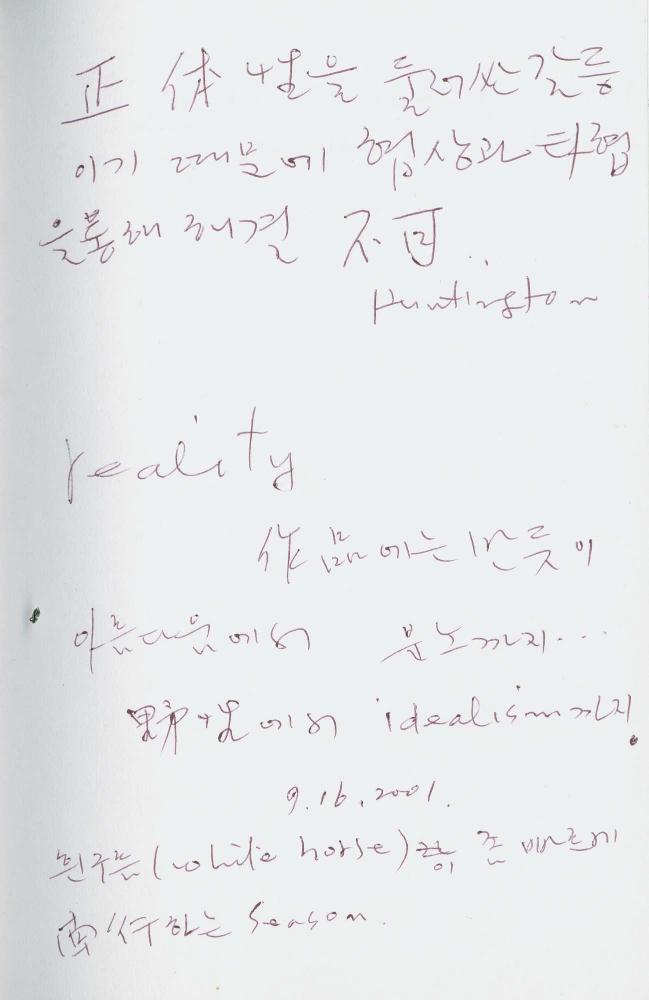 正体性을 둘러싼 갈등
이기 때문에 협상과 타협
을 통해 해결 不可..
Huntington
reality
作品에는 반듯이
아름다움에서 분노까지...
野性에서 idealism까지.
9.16.2001.
흰구름 (white horse) 좀 빠르게
南行하는 season.